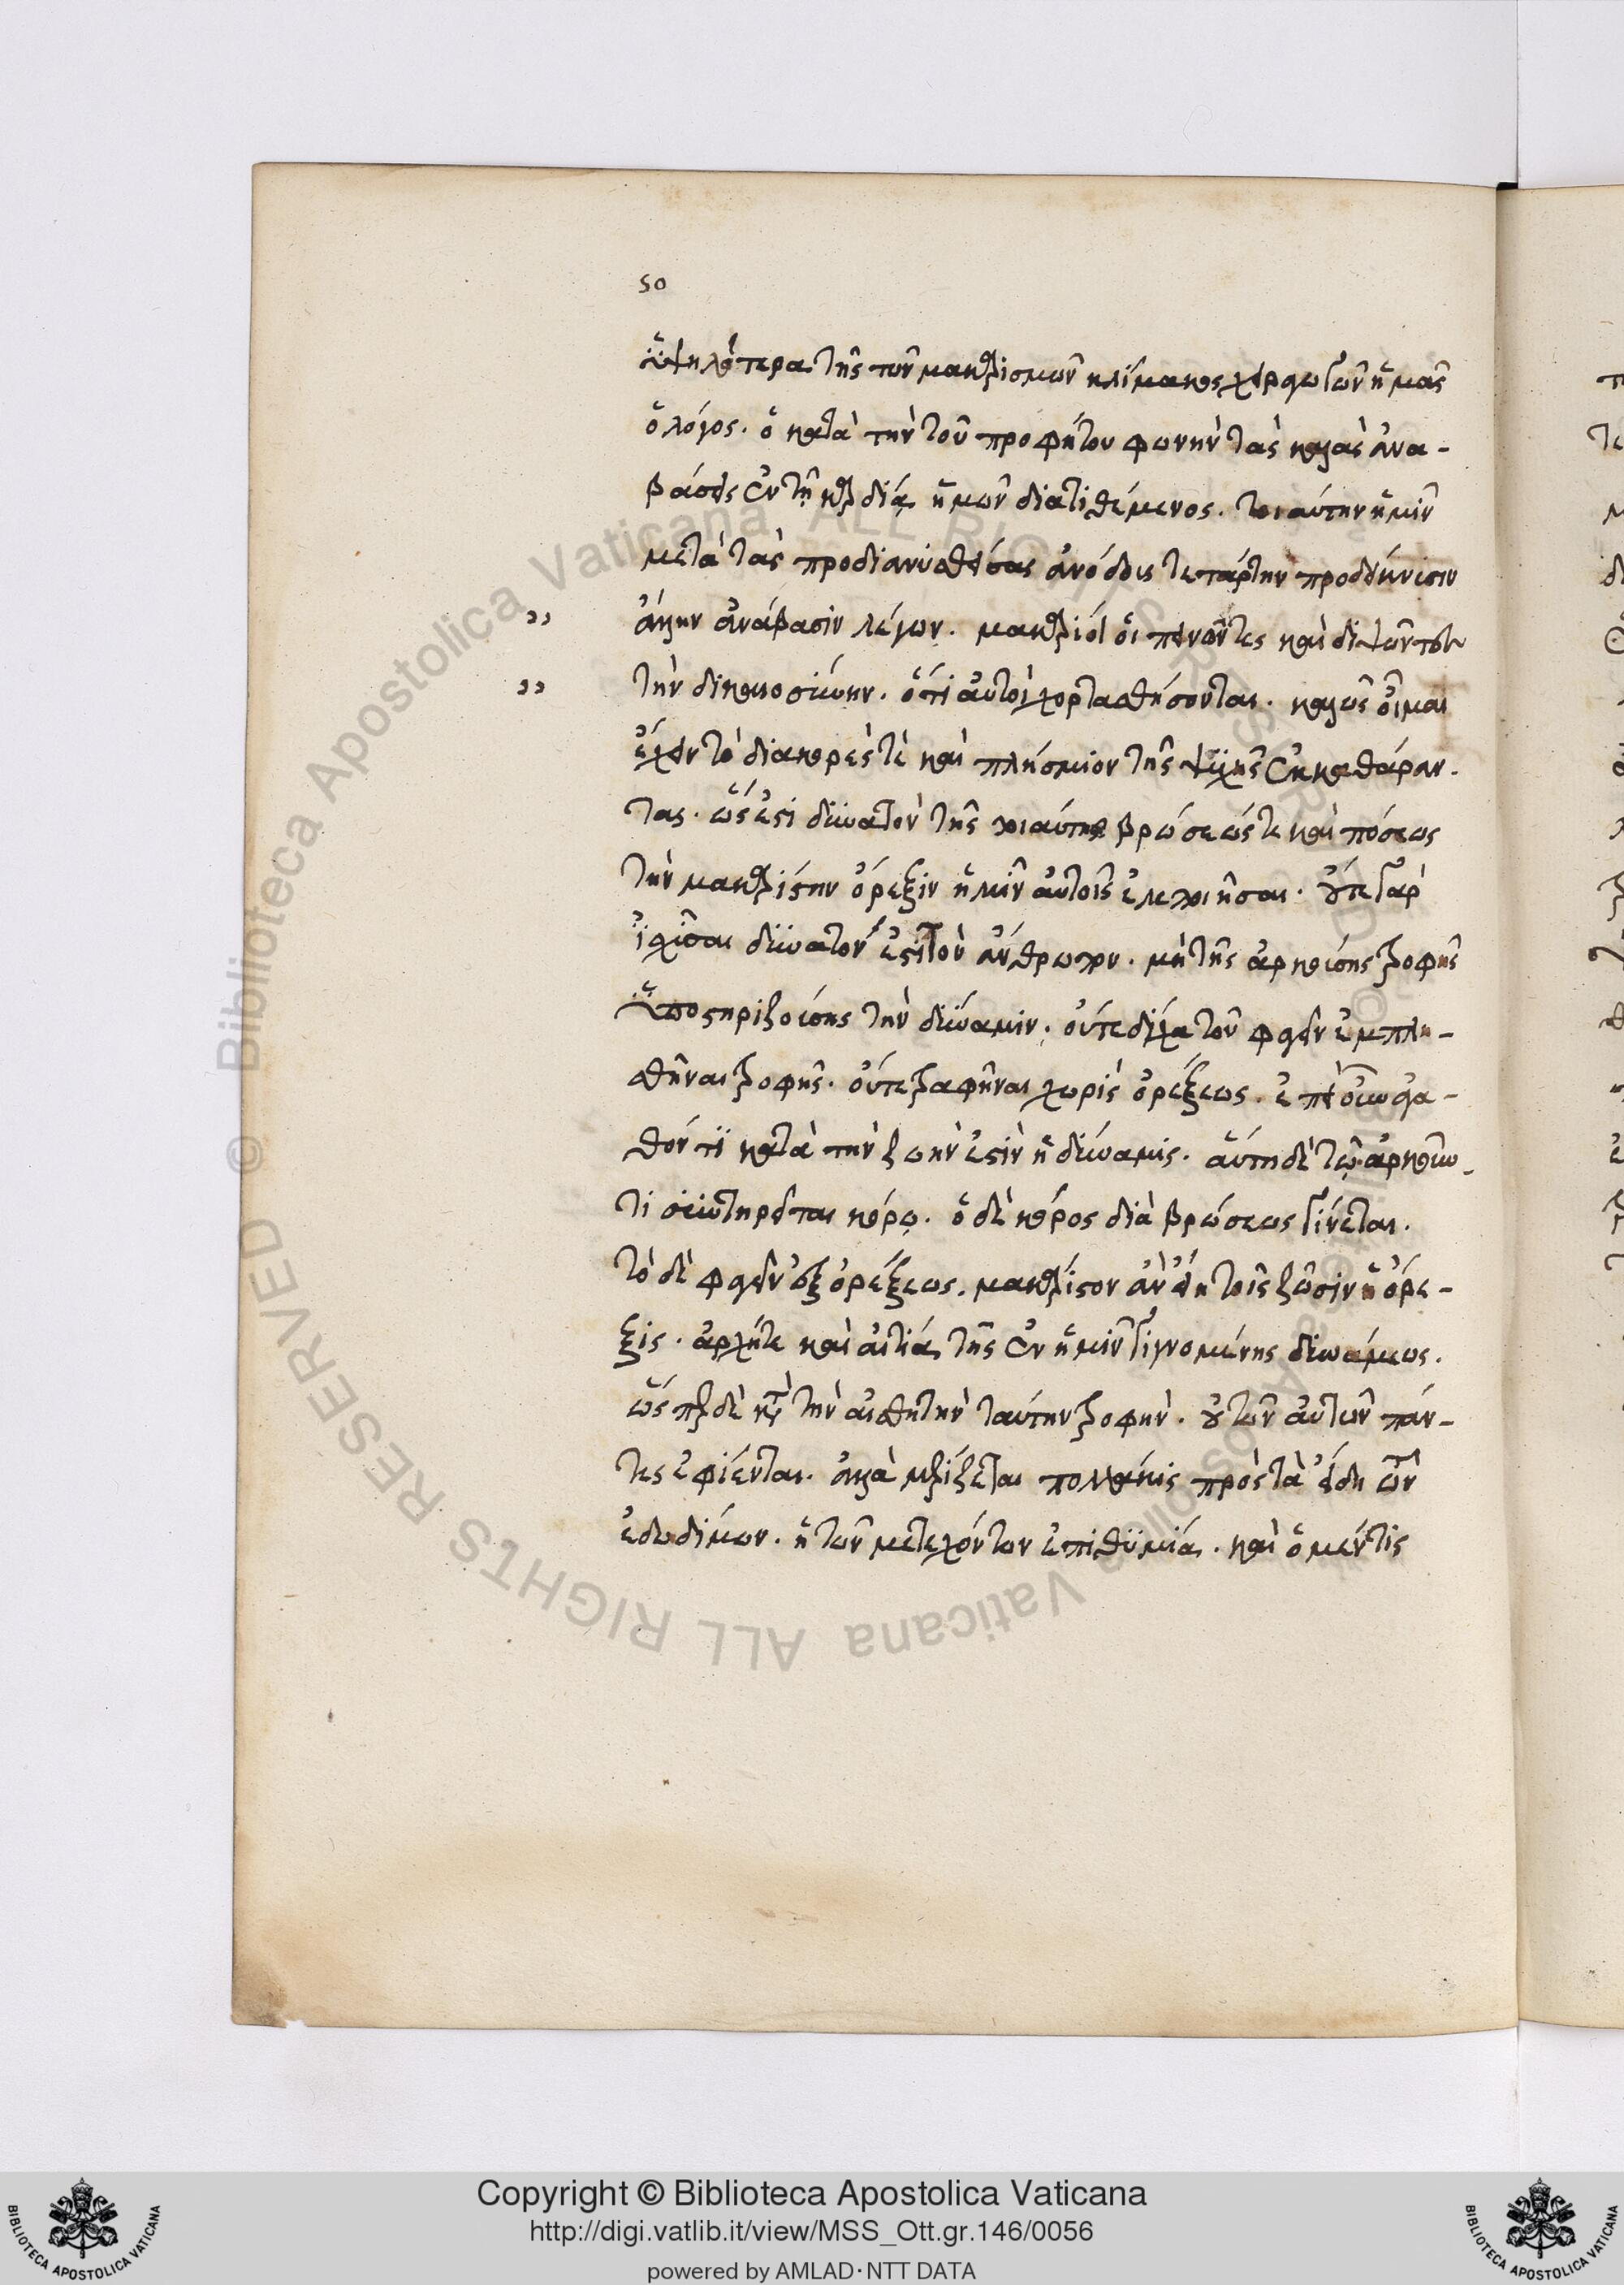 50
ὑψηλότερα τῆς τῶν μακαρισμῶν κλίμακος χειραγωγῶν ἡμᾶς
ὁ λόγος. ὁ κατὰ τὴν τοῦ προφήτου φωνὴν τὰς καλὰς ἀνα-
βάσεις ἐν τῇ καρδίᾳ ἡμῶν διατιθέμενος. τοιαύτην ἡμῖν
μετὰ τὰς προδιανυσθείσας ἀνόδους τετάρτην προδείκνυσιν
ἄλλην ἀνάβασιν λέγων. μακάριοι οἱ πεινῶντες καὶ διψῶντες
,, ,,
τὴν δικαιοσύνην. ὅτι αὐτοὶ χορτασθήσονται. καλῶς οἶμαι
,, ,,
ἔχειν τὸ διακορές τε καὶ πλήσμιον τῆς ψυχῆς ἐκκαθάραν-
τας. ὥς ἐστι δυνατὸν τῆς τοιαύτης βρώσεώς τε καὶ πόσεως
τὴν μακαρίστην ὄρεξιν ἡμῖν αὐτοῖς ἐμποιῆσαι. οὔτε γὰρ
ἰσχῦσαι δυνατόν ἐστι τὸν ἄνθρωπον. μὴ τῆς ἀρκούσης τροφῆς
ὑποστηριζούσης τὴν δύναμιν. οὔτε δίχα τοῦ φαγεῖν ἐμπλη-
σθῆναι τροφῆς. οὔτε τραφῆναι χωρὶς ὀρέξεως. ἐπεὶ οὖν ἀγα-
θόν τι κατὰ τὴν ζωήν ἐστιν ἡ δύναμις. αὕτη δὲ τῷ ἀρκοῦν-
τι συντηρεῖται κόρῳ. ὁ δὲ κόρος διὰ βρώσεως γίνεται.
τὸ δὲ φαγεῖν ἐξ ὀρέξεως. μακάριστον ἂν εἴη τοῖς ζῶσιν ἡ ὄρε-
ξις. ἀρχή τε καὶ αἰτία τῆς ἐν ἡμῖν γιγνομένης δυνάμεως.
ὥσπερ δὲ κατὰ τὴν αἰσθητὴν ταύτην τροφήν. οὐ τῶν αὐτῶν πάν-
τες ἐφίενται. ἀλλὰ μερίζεται πολλάκις πρὸς τὰ εἴδη τῶν
ἐδωδίμων. ἡ τῶν μετεχόντων ἐπιθυμία. καὶ ὁ μέν τις
© Biblioteca Apostolica Vaticana ALL RIGHTS RESERVED
Copyright © Biblioteca Apostolica Vaticana
http://digi.vatlib.it/view/MSS_Ott.gr.146/0056
powered by AMLAD·NTT DATA
BIBLIOTECA APOSTOLICA VATICANA
BIBLIOTECA APOSTOLICA VATICANA